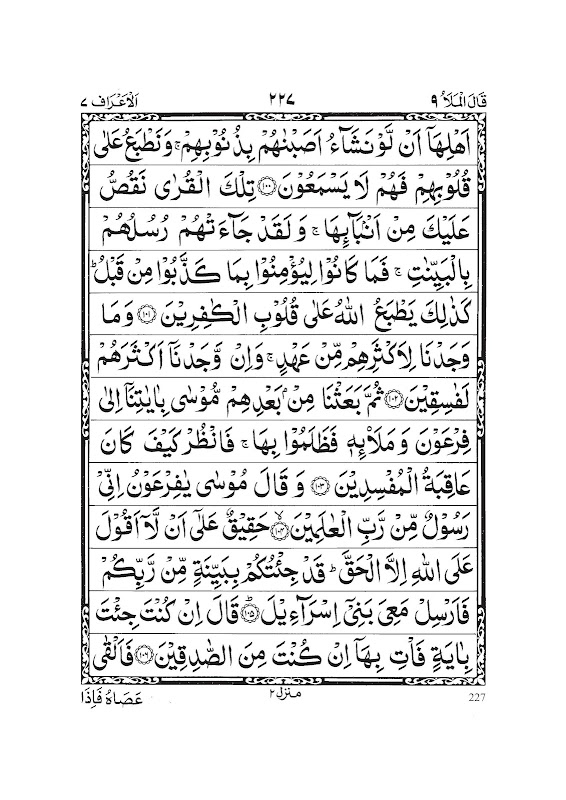 قَالَ الْمَلَاُ ٩ ٢٢٧ اَلْاَعْرَاف ٧
اَهْلِهَاۤ اَنْ لَّوْ نَشَآءُ اَصَبْنٰهُمْ بِذُنُوْبِهِمْ ۚ وَنَطْبَعُ عَلٰى
قُلُوْبِهِمْ فَهُمْ لَا يَسْمَعُوْنَ ﴿١٠٠﴾ تِلْكَ الْقُرٰى نَقُصُّ
عَلَيْكَ مِنْ اَنْۢبَآىِٕهَا ۚ وَلَقَدْ جَآءَتْهُمْ رُسُلُهُمْ
بِالْبَيِّنٰتِ ۚ فَمَا كَانُوْا لِيُؤْمِنُوْا بِمَا كَذَّبُوْا مِنْ قَبْلُ ؕ
كَذٰلِكَ يَطْبَعُ اللّٰهُ عَلٰى قُلُوْبِ الْكٰفِرِيْنَ ﴿١٠١﴾ وَمَا
وَجَدْنَا لِاَكْثَرِهِمْ مِّنْ عَهْدٍ ۚ وَاِنْ وَّجَدْنَاۤ اَكْثَرَهُمْ
لَفٰسِقِيْنَ ﴿١٠٢﴾ ثُمَّ بَعَثْنَا مِنْۢ بَعْدِهِمْ مُّوْسٰى بِاٰيٰتِنَاۤ اِلٰى
فِرْعَوْنَ وَمَلَا۟ىِٕهٖ فَظَلَمُوْا بِهَا ۚ فَانْظُرْ كَيْفَ كَانَ
عَاقِبَةُ الْمُفْسِدِيْنَ ﴿١٠٣﴾ وَقَالَ مُوْسٰى يٰفِرْعَوْنُ اِنِّيْ
رَسُوْلٌ مِّنْ رَّبِّ الْعٰلَمِيْنَ ﴿١٠٤﴾ۙ حَقِيْقٌ عَلٰۤى اَنْ لَّاۤ اَقُوْلَ
عَلَى اللّٰهِ اِلَّا الْحَقَّ ؕ قَدْ جِئْتُكُمْ بِبَيِّنَةٍ مِّنْ رَّبِّكُمْ
فَاَرْسِلْ مَعِيَ بَنِيْۤ اِسْرَآءِيْلَ ﴿١٠٥﴾ؕ قَالَ اِنْ كُنْتَ جِئْتَ
بِاٰيَةٍ فَاْتِ بِهَاۤ اِنْ كُنْتَ مِنَ الصّٰدِقِيْنَ ﴿١٠٦﴾ فَاَلْقٰى
227 منزل ٢ عَصَاهُ فَاِذَا